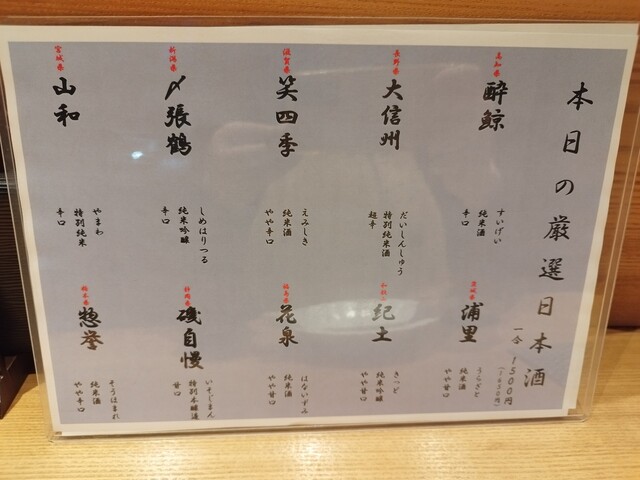 本日の厳選日本酒
一合 1500円
(1650円)
高知県
酔鯨
すいげい
純米酒
辛口
長野県
大信州
だいしんしゅう
特別純米酒
超辛
滋賀県
笑四季
えみしき
純米酒
やや辛口
新潟県
〆張鶴
しめはりつる
純米吟醸
辛口
宮城県
山和
やまわ
特別純米
辛口
茨城県
浦里
うらざと
純米酒
やや甘口
和歌山
紀土
きっど
純米吟醸
やや甘口
福島県
花泉
はないずみ
純米酒
やや甘口
静岡県
磯自慢
いそじまん
特別本醸造
甘口
栃木県
惣誉
そうほまれ
純米酒
やや辛口